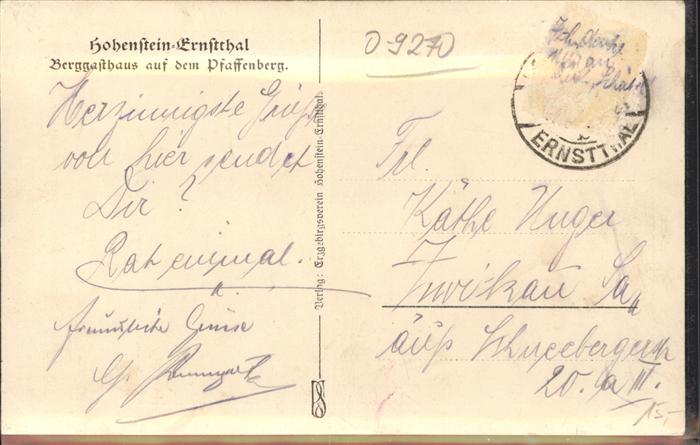 Hohenstein-Ernstthal
Berggasthaus auf dem Pfaffenberg.
Herzinnigste Grüße
von hier sendet
Dir ?
Rat einmal.
freundliche Grüsse
Verlag: Erzgebirgsverein Hohenstein-Ernstthal.
09270
ERNSTTHAL
Frl.
Käthe Unger
Zwickau Sa.
äuß. Schneebergerstr
20. III.
15.-